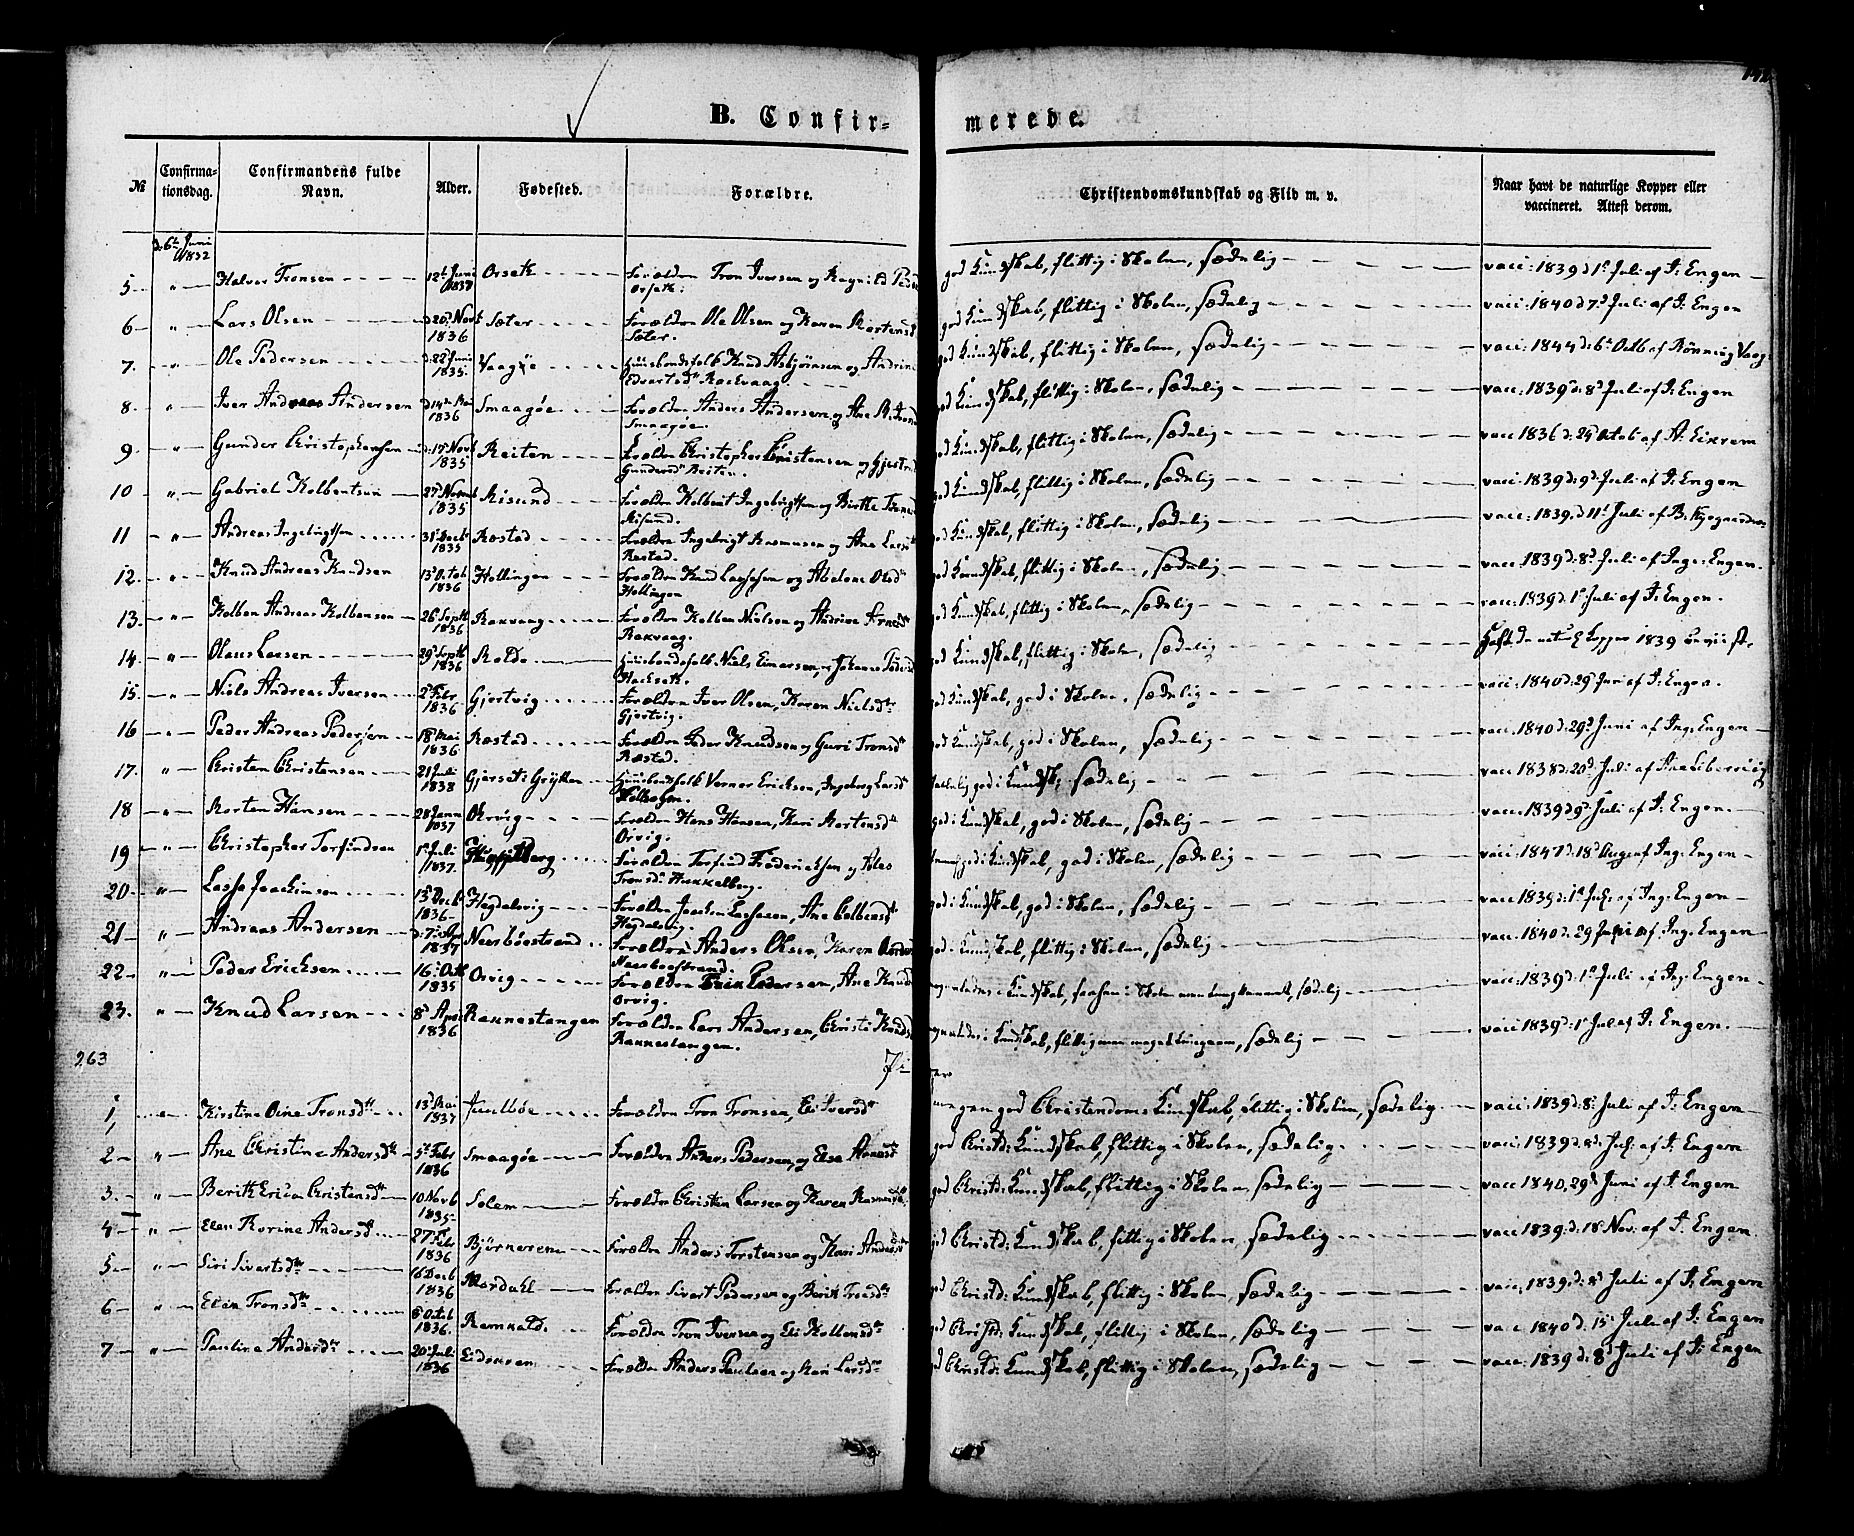 B. Confir- merede.
№ Confirmationsdag. Confirmandens fulde Navn. Alder. Fødested. Forældre. Christendomskundskab og Flid m. v. Naar havt de naturlige Kopper eller vaccineret. Attest derom.
d. 6te Juni
5 " Halvor Tronsen 12te Juni 1837 Orseth Forældre Tron Iversen og Ragnild Orseth. god Kundskab, flittig i Skolen, sædelig vacc: 1839 d 1 Juli af I: Engen
6 " Lars Olsen d 20 Novb 1836 Sæter Forældre Ole Olsen og Karen Mortensd Sæter. god Kundskab, flittig i Skolen, sædelig vacc: 1840 d 7d Juli af I: Engen
7. " Ole Pedersen d: 22 Juni 1835. Vaagøe Huusbondsfolk Knud Asbjørnsen og Andrine Edvartsd Rackvaag god Kundskab, flittig i Skolen, sædelig vacc: 1844 d: 6te Octb af Rønning Vaag
8 " Iver Andreas Andersen 1836 Smaagøe Forældre Anders Andersen og Ane Smaagøe. god Kundskab, flittig i Skolen, sædelig vacc 1839 d: 8d Juli af I: Engen
9 " Gunder Christophersen d: 15 Novb 1835 Reiten Forældre Christopher Christensen og Gjertrud Gundersd Reiten. god Kundskab, flittig i Skolen, sædelig vacc 1836 d: 24 Octob af A. Eikrem
10 " Gabriel Kolbentsen 27 Novemb 1835 Misund Forældre Kolbent Ingebrigtsen og Birthe Misund. god Kundskab, flittig i Skolen, sædelig vacc: 1839 d: 9d Juli af I: Engen
11 " Andreas Ingebrigtsen 31 Decb 1835 Røstad Forældre Ingebrigt Rasmussen og Ane Larsd Røstad. god Kundskab, flittig i Skolen, sædelig vacc: 1839. d 11d Juli af
12. " Knud Andreas Knudsen 13 Octob 1836 Hollingen Forældre Knud Lassesen og Abelone Olsd Hollingen god Kundskab, flittig i Skolen, sædelig vacc: 1839 d: 8d Juli af Ing: Engen.
13. " Kolben Andreas Kolbensen 26 Septb 1836 Rakvaag Forældre Kolben Nielsen og Andrine Arnesd Rakvaag. god Kundskab, flittig i Skolen, sædelig vacc: 1839 d. 1 Juli af I: Engen.
14 " Olaus Larsen 29 Septb 1836 Molde Huusbondsfolk Niels Einersen, Johanne Pedersd god Kundskab, flittig i Skolen, sædelig Havt de nat. Kopper 1839
15. " Niels Andreas Iversen 2 Febr 1836 Gjertvig Forældre Iver Olsen, Karen Nielsdtr Gjertvig. god Kundskab, god i Skolen, sædelig vacc: 1840 d: 29 Juni af I: Engen.
16 " Peder Andreas Pedersen 18 Mai 1836 Røstad Forældre Peder Knudsen og Guri Tronsd Røstad. god Kundskab, god i Skolen, sædelig vacc 1840 d: 29d Juni af Ing: Engen
17. " Christen Christensen 21 Juli 1838 Gjerset i Grytten Huusbondsfolk Verner Ericksen, Ingeborg Larsd god i Kundsk, sædelig vacc 1838 d: 20d Juli af
18 " Morten Hansen 28 Janu 1837 Orvig Forældre Hans Hansen, Kari Mortensd Orvig. god i Kundskab, god i Skolen, sædelig vacc: 1839 d 9d Juli af I: Engen.
19 " Christopher Torfindsen 1 Juli 1837. Forældre Torfind Frederichsen og Tronsd Hukkelberg. god i Kundskab, god i Skolen, sædelig vacc: 1847 d: 18d Aug af Ing: Engen
20 " Lasse Joachimsen 13 Decb 1836 Høgdalsvig Forældre Joachim Lassesen, Ane Colbensd Høgdalsvig. god i Kundskab, god i Skolen, sædelig vacc: 1839 d: 1 Juli af Ing: Engen
21 " Andreas Andersen d: 7 Ap 1837 Neerbøestrand Forældre Anders Olsen, Karen Neerboestrand. god i Kundskab, flittig i Skolen, sædelig vacc: 1840 d. 29 Juni af Ing. Engen
22 " Peder Ericksen 16: Octb 1835 Orvig Forældre Erik Pedersen, Ane Knudsd Orvig. Kundskab, i Skolen sædelig vacc: 1839 d: 1d Juli af Ing: Engen
23. " Knud Larsen 8 April 1836 Rannestangen Forældre Lars Andersen, Christi Knudsd Rannestangen. Kundskab, flittig men meget sædelig vacc 1839 d: 1 Jul af I: Engen.
263
1, Kirstine Oine Tronsdtr 13 Mai 1837 Juulbøe Forældre Tron Tronsen, Eli Iversdtr megen god Christendoms Kundskab, flittig i Skolen, sædelig vacc: 1839 d: 8: Juli af I: Engen
2 " Ane Christine Andersdtr 5te Febr 1836 Smaagøe Forældre Anders Pedersen, og Else Arnesd god Christd: Kundskab, flittig i Skolen, sædelig vacc: 1839 d. 8d Juli af I: Engen
3. " Berith Erica Christensdtr 10 Novb 1835 Solem Forældre Christen Larsen og Karen Rasmusd god Christd: Kundskab, flittig i Skolen, sædelig vacc 1840, 29d Juni af I. Engen
4 " Elen Karine Andersd 27 Febr 1836 Bjørnerem Forældre Anders Torstensen og Kari Andersd god Christd: Kundskab, flittig i Skolen, sædelig vacc: 1839. d: 18 Nov: af I. Engen.
5 " Siri Sivertsdtr 16 Decb 1836 Mordahl Forældre Sivert Pedersen og Berit Tronsdtr god Christd: Kundskab, flittig i Skolen, sædelig vacc, 1839, d: 8d Juli af I: Engen
6 " Elen Tronsdtr 8 Octob 1836. Forældre Tron Iversen og Eli Kolbensdtr god Christd: Kundskab, flittig i Skolen, sædelig vacc 1840 d. 15 Juli af I: Engen
7 " Pauline Andersdtr 20 Juli 1836 Eidsaasen Forældre Anders Paulsen og Kari Larsdtr god Christd: Kundskab, flittig i Skolen, sædelig vacc: 1839 d: 8d Juli af I: Engen